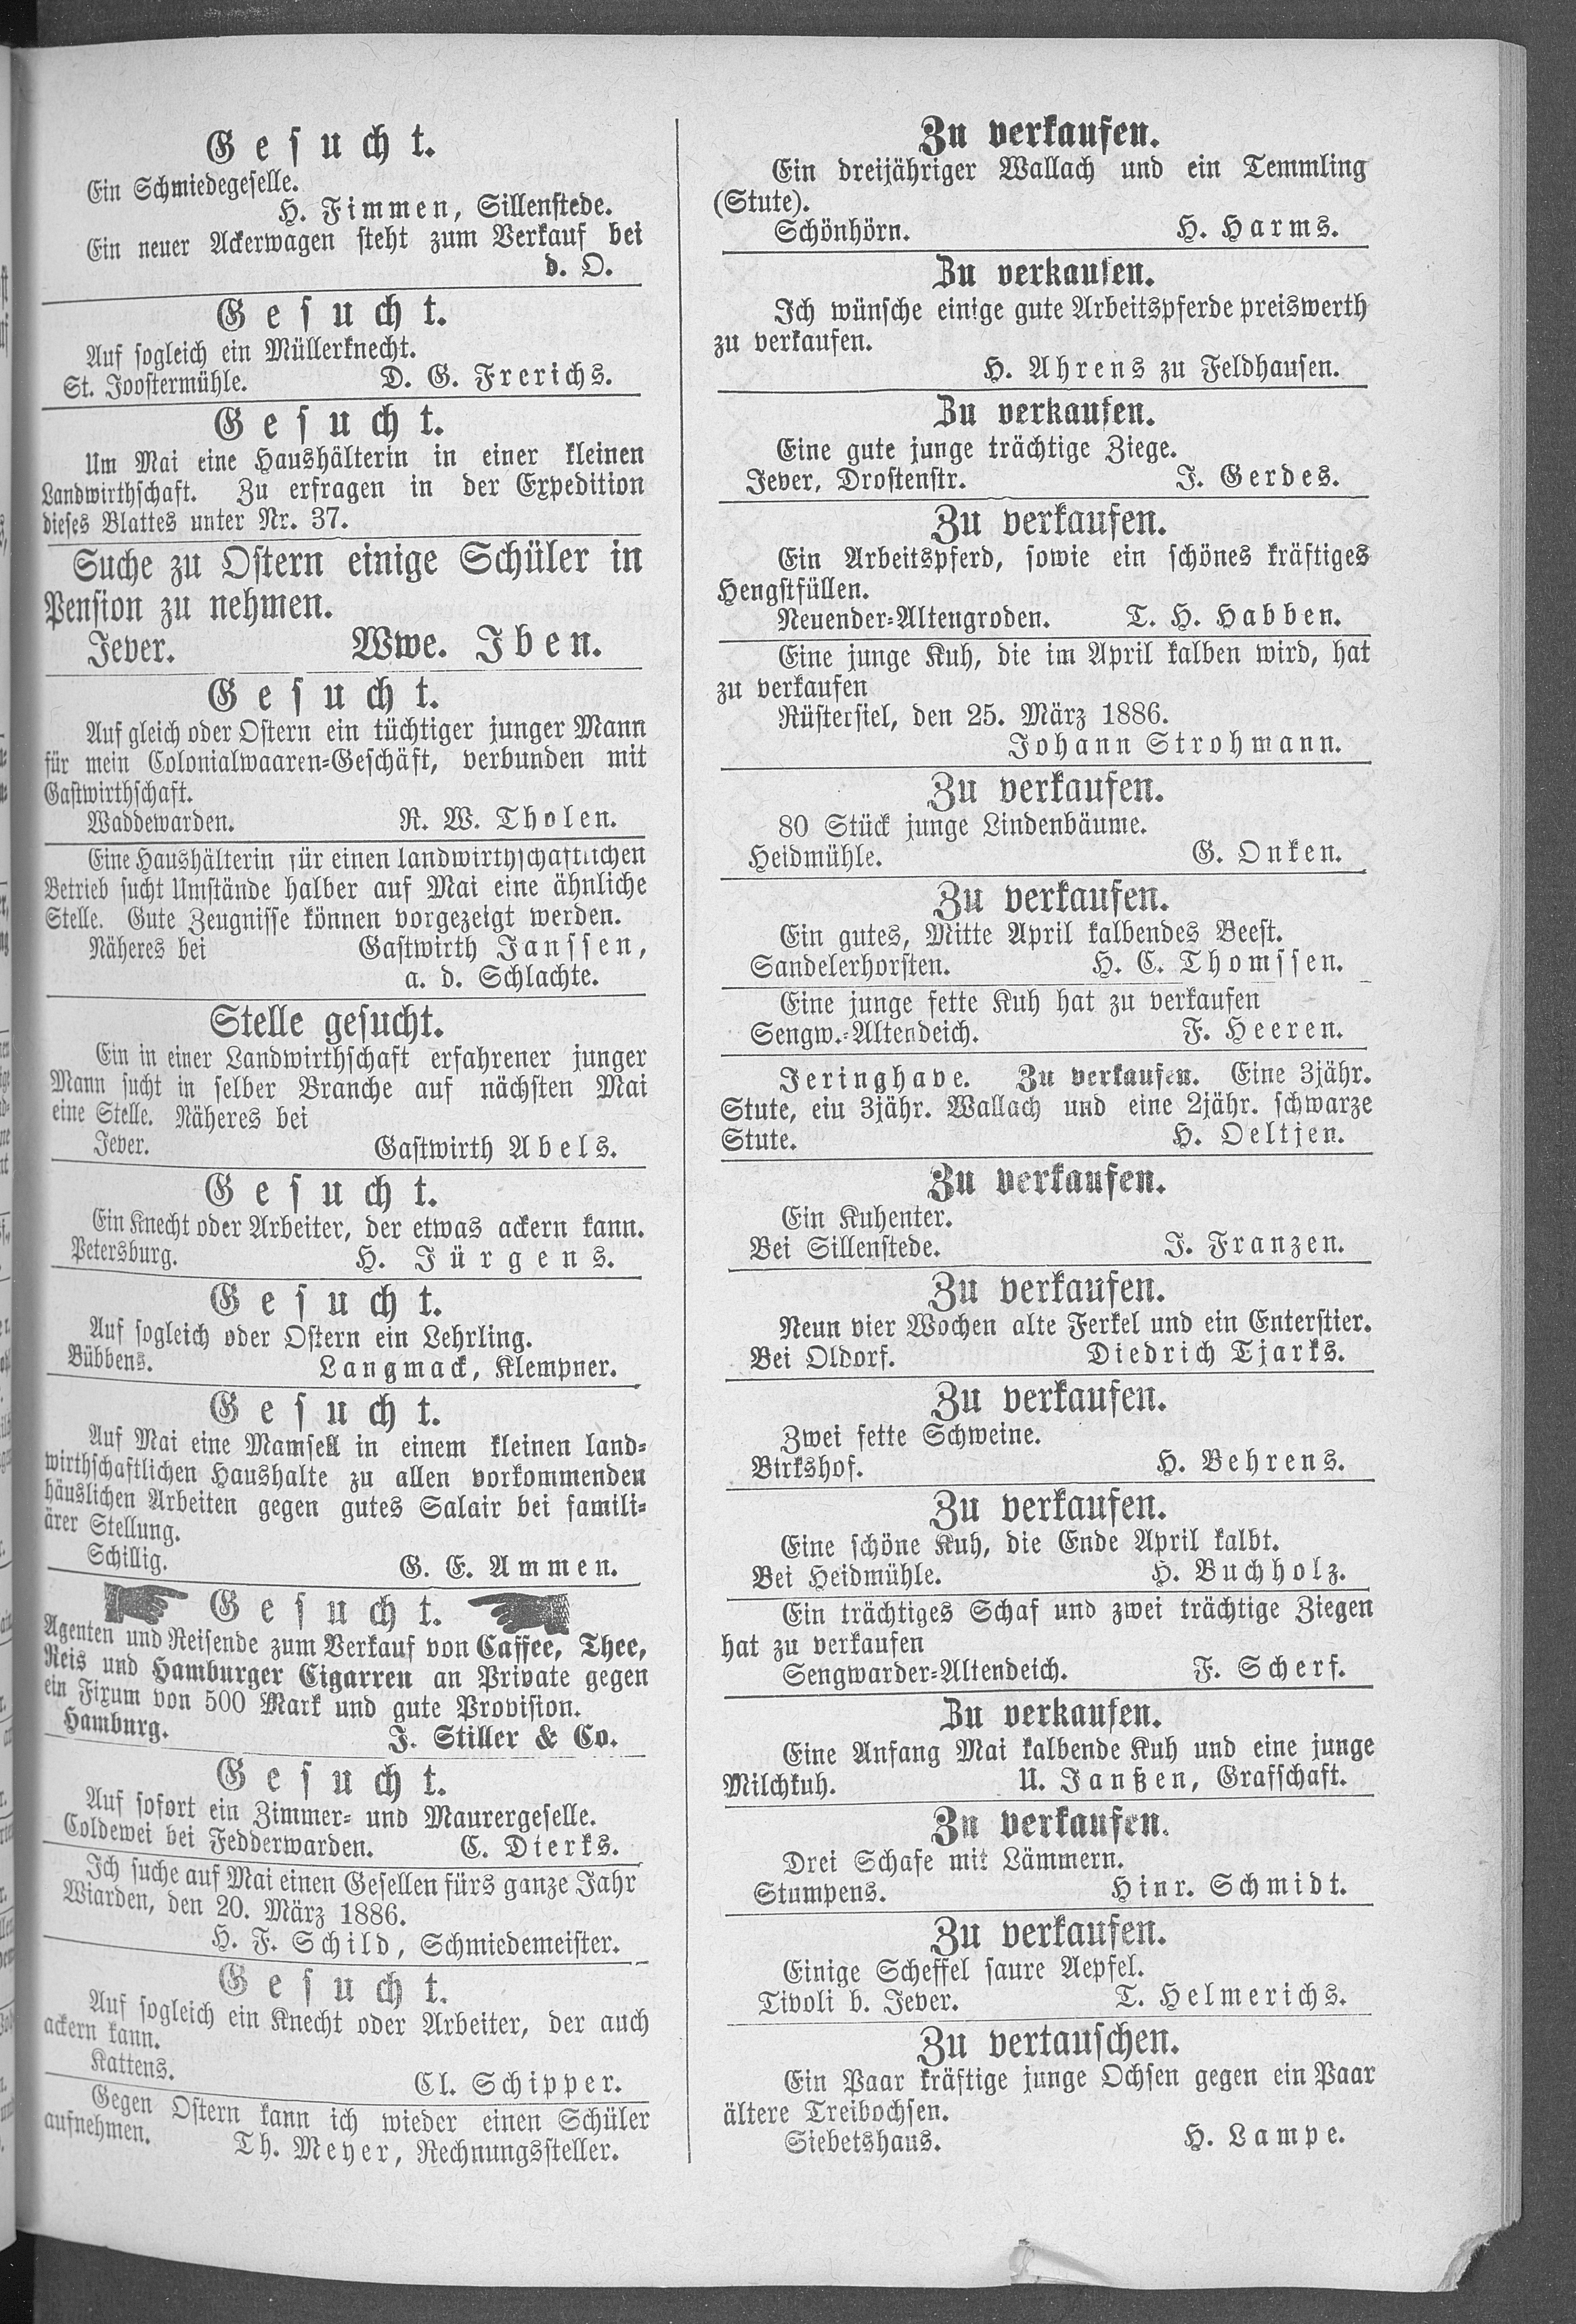 Gesucht.
Ein Schmiedegeselle.
H. Fimmen, Sillenstede.
Ein neuer Ackerwagen steht zum Verkauf bei
d. O.
Gesucht.
Auf sogleich ein Müllerknecht.
St. Joostermühle. D. G. Frerichs.
Gesucht.
Um Mai eine Haushälterin in einer kleinen
Landwirthschaft. Zu erfragen in der Expedition
dieses Blattes unter Nr. 37.
Suche zu Ostern einige Schüler in
Pension zu nehmen.
Jever. Wwe. Iben.
Gesucht.
Auf gleich oder Ostern ein tüchtiger junger Mann
für mein Colonialwaaren-Geschäft, verbunden mit
Gastwirthschaft.
Waddewarden. R. W. Tholen.
Eine Haushälterin für einen landwirthschaftlichen
Betrieb sucht Umstände halber auf Mai eine ähnliche
Stelle. Gute Zeugnisse können vorgezeigt werden.
Näheres bei Gastwirth Janssen,
a. d. Schlachte.
Stelle gesucht.
Ein in einer Landwirthschaft erfahrener junger
Mann sucht in selber Branche auf nächsten Mai
eine Stelle. Näheres bei
Jever. Gastwirth Abels.
Gesucht.
Ein Knecht oder Arbeiter, der etwas ackern kann.
Petersburg. H. Jürgens.
Gesucht.
Auf sogleich oder Ostern ein Lehrling.
Bübbens. Langmack, Klempner.
Gesucht.
Auf Mai eine Mamsell in einem kleinen land-
wirthschaftlichen Haushalte zu allen vorkommenden
häuslichen Arbeiten gegen gutes Salair bei famili-
ärer Stellung.
Schillig. G. E. Ammen.
Gesucht.
Agenten und Reisende zum Verkauf von Caffee, Thee,
Reis und Hamburger Cigarren an Private gegen
ein Fixum von 500 Mark und gute Provision.
Hamburg. J. Stiller & Co.
Gesucht.
Auf sofort ein Zimmer- und Maurergeselle.
Coldewei bei Fedderwarden. C. Dierks.
Ich suche auf Mai einen Gesellen fürs ganze Jahr
Wiarden, den 20. März 1886.
H. F. Schild, Schmiedemeister.
Gesucht.
Auf sogleich ein Knecht oder Arbeiter, der auch
ackern kann.
Kattens. Cl. Schipper.
Gegen Ostern kann ich wieder einen Schüler
aufnehmen. Th. Meyer, Rechnungssteller.
Zu verkaufen.
Ein dreijähriger Wallach und ein Temmling
(Stute).
Schönhörn. H. Harms.
Zu verkaufen.
Ich wünsche einige gute Arbeitspferde preiswerth
zu verkaufen.
H. Ahrens zu Feldhausen.
Zu verkaufen.
Eine gute junge trächtige Ziege.
Jever, Drostenstr. J. Gerdes.
Zu verkaufen.
Ein Arbeitspferd, sowie ein schönes kräftiges
Hengstfüllen.
Neuender-Altengroden. T. H. Habben.
Eine junge Kuh, die im April kalben wird, hat
zu verkaufen
Rüstersiel, den 25. März 1886.
Johann Strohmann.
Zu verkaufen.
80 Stück junge Lindenbäume.
Heidmühle. G. Onken.
Zu verkaufen.
Ein gutes, Mitte April kalbendes Beest.
Sandelerhorsten. H. C. Thomssen.
Eine junge fette Kuh hat zu verkaufen
Sengw.-Altendeich. F. Heeren.
Jeringhave. Zu verkaufen. Eine 3jähr.
Stute, ein 3jähr. Wallach und eine 2jähr. schwarze
Stute. H. Oeltjen.
Zu verkaufen.
Ein Kuhenter.
Bei Sillenstede. J. Franzen.
Zu verkaufen.
Neun vier Wochen alte Ferkel und ein Enterstier.
Bei Oldorf. Diedrich Tjarks.
Zu verkaufen.
Zwei fette Schweine.
Birkshof. H. Behrens.
Zu verkaufen.
Eine schöne Kuh, die Ende April kalbt.
Bei Heidmühle. H. Buchholz.
Ein trächtiges Schaf und zwei trächtige Ziegen
hat zu verkaufen
Sengwarder-Altendeich. F. Scherf.
Zu verkaufen.
Eine Anfang Mai kalbende Kuh und eine junge
Milchkuh. U. Janßen, Grafschaft.
Zu verkaufen.
Drei Schafe mit Lämmern.
Stumpens. Hinr. Schmidt.
Zu verkaufen.
Einige Scheffel saure Aepfel.
Tivoli b. Jever. T. Helmerichs.
Zu vertauschen.
Ein Paar kräftige junge Ochsen gegen ein Paar
ältere Treibochsen.
Siebetshaus. H. Lampe.